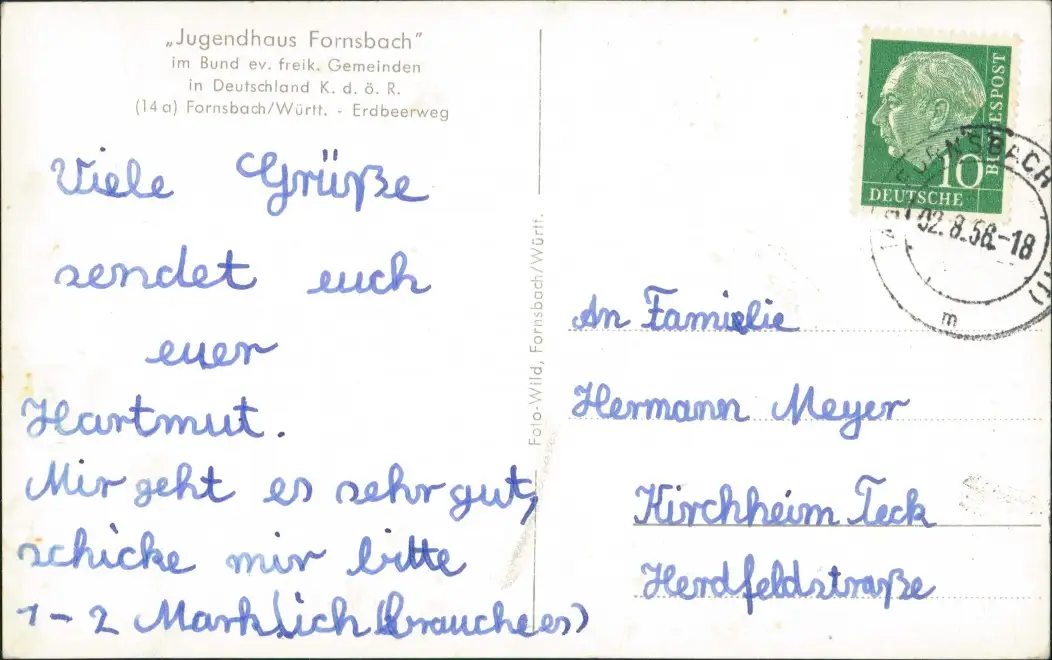 „Jugendhaus Fornsbach"
im Bund ev. freik. Gemeinden
in Deutschland K. d. ö. R.
(14 a) Fornsbach/Württ. - Erdbeerweg
Viele Grüße
sendet euch
euer
Hartmut.
Mir geht es sehr gut,
schicke mir bitte
1-2 Mark(ich brauche es)
Foto-Wild, Fornsbach/Württ.
BUNDESPOST
10
DEUTSCHE
FORNSBACH
02.8.58.-18
m
An Familie
Hermann Meyer
Kirchheim Teck
Herdfeldstraße